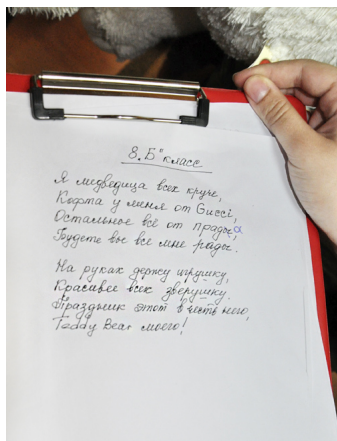 8 „Б" класс
Я медведица всех круче,
Кофта у меня от Gucci,
Остальное всё от Прады,
Будете вы все мне рады.
На руках держу игрушку,
Красивее всех зверушку.
Праздник этот в честь него,
Teddy Bear моего!